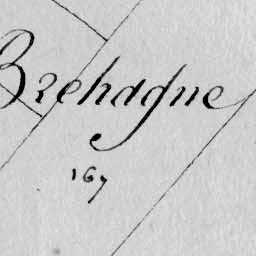 Brehagne
167